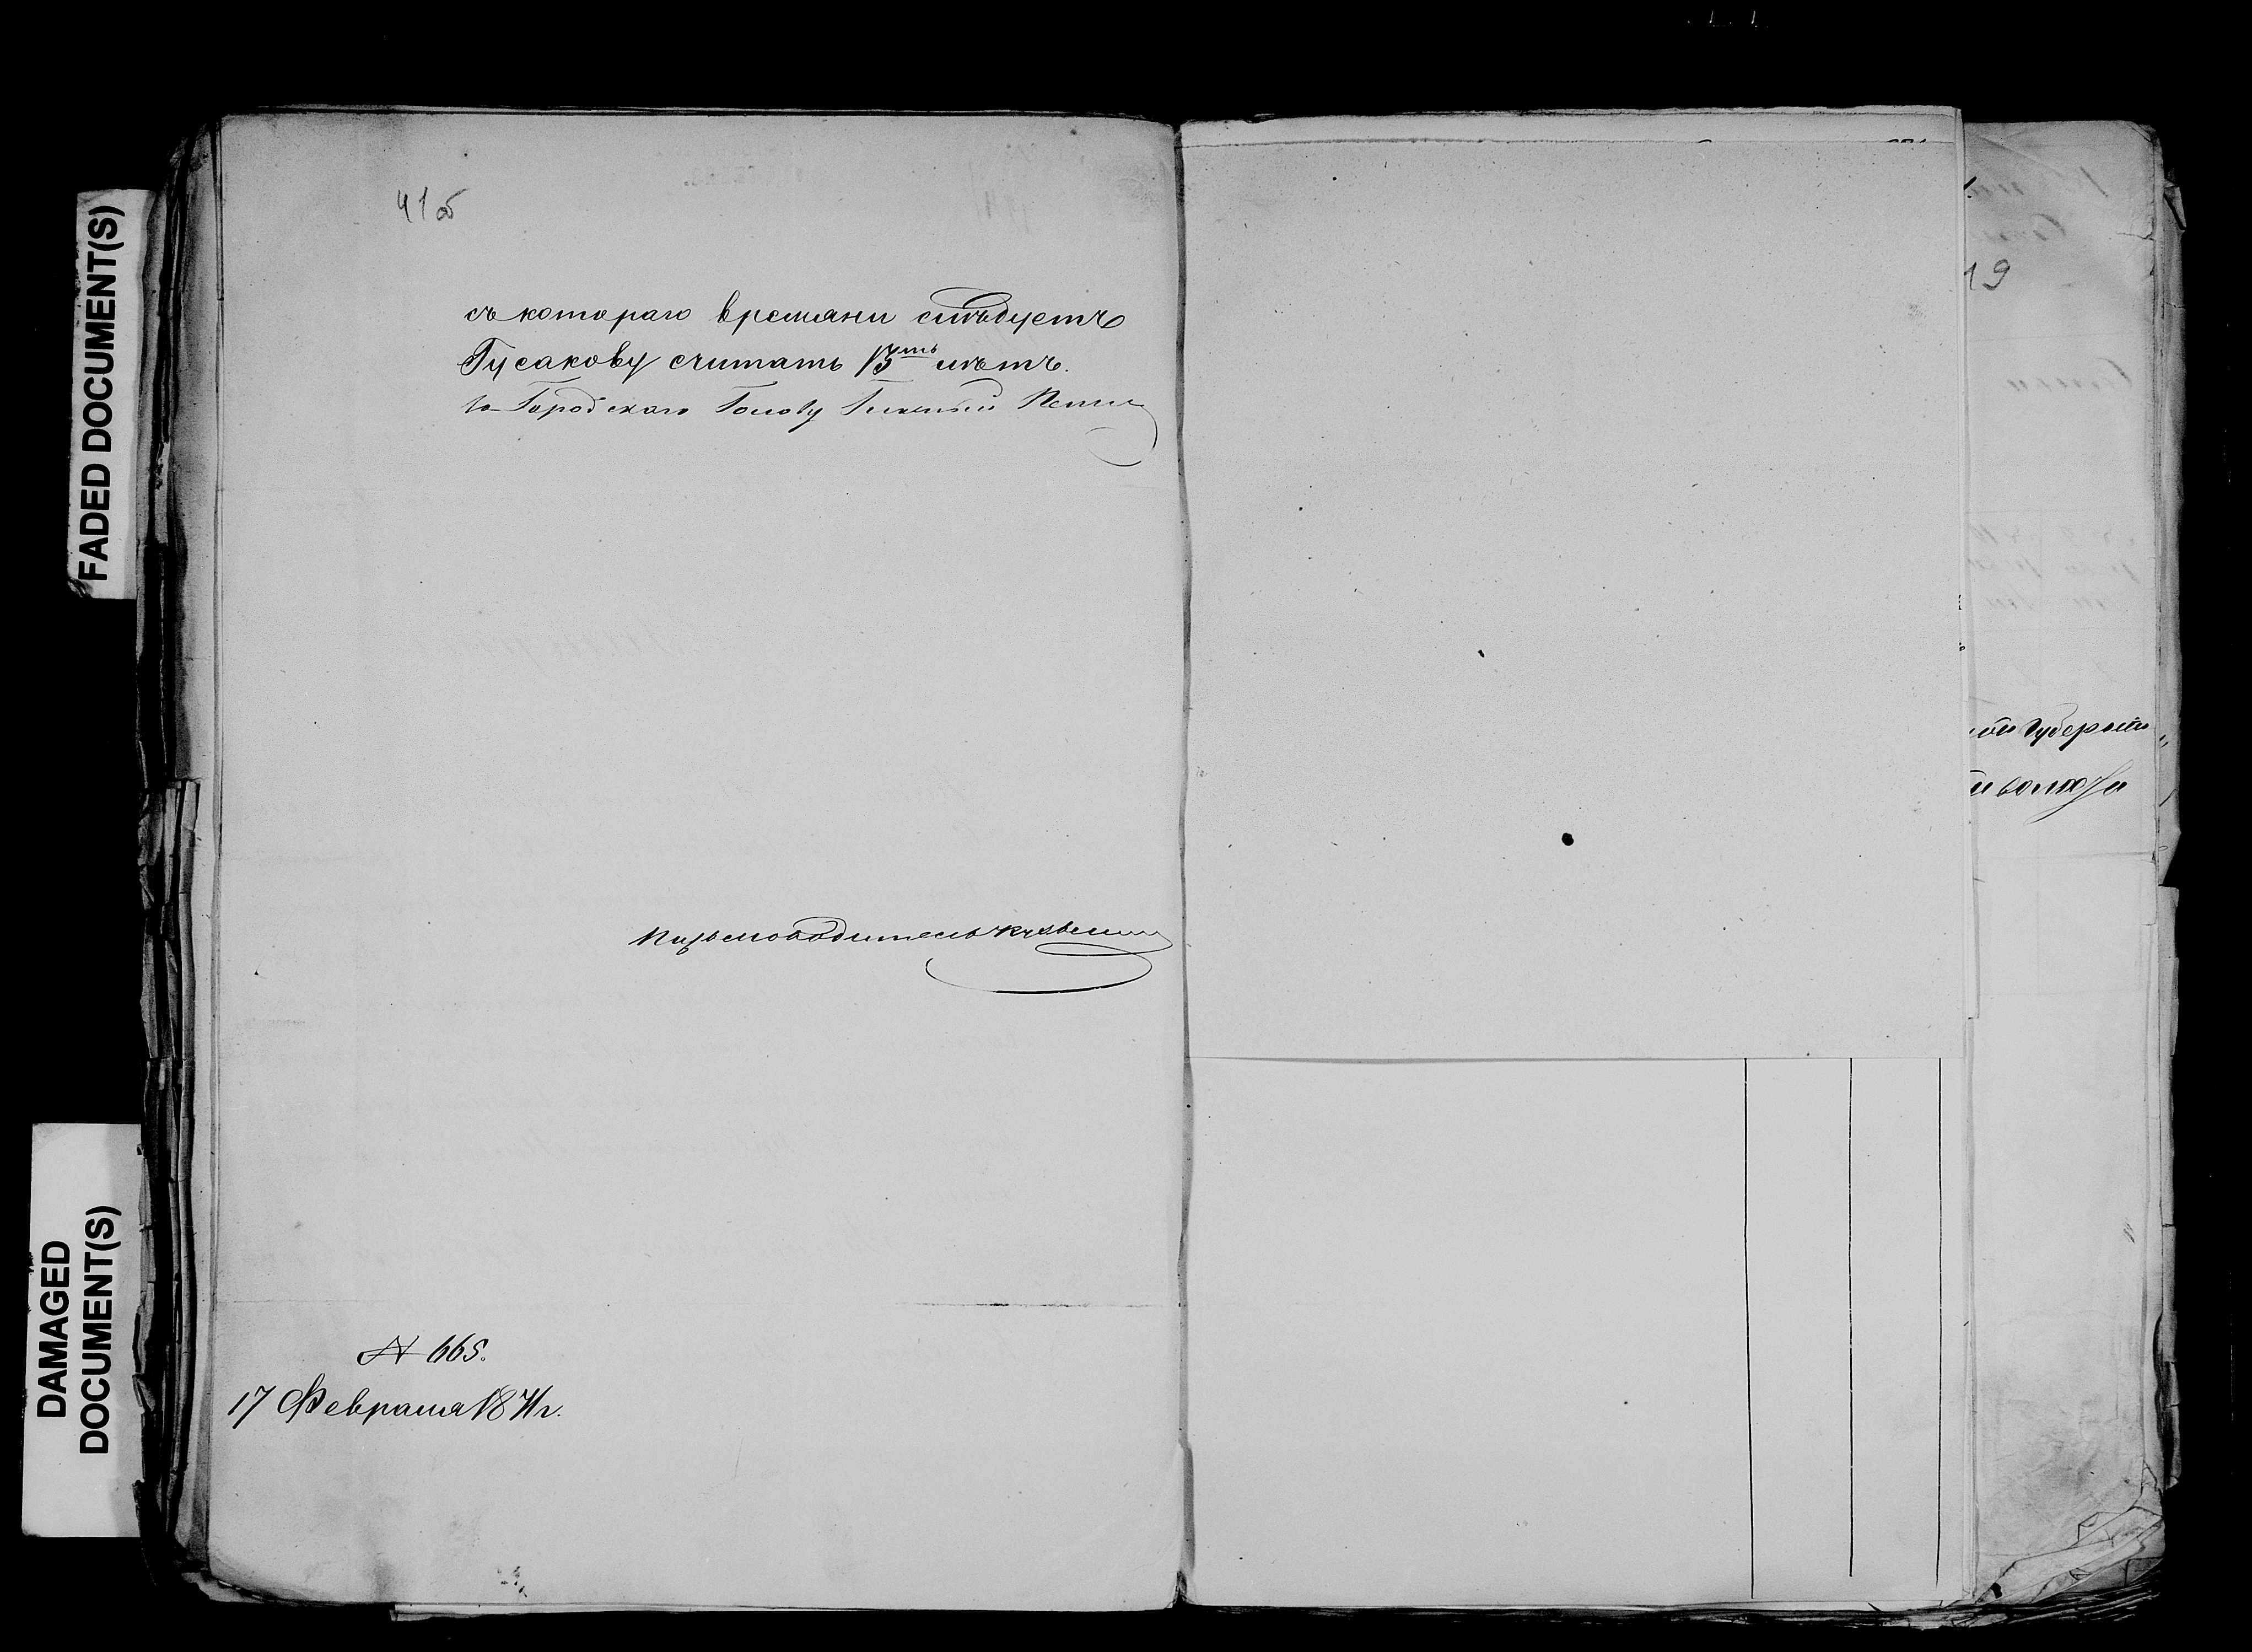 FADED DOCUMENT(S)
DAMAGED
DOCUMENT(S)
41об
съ котораго времяни слѣдуетъ
Гусакову считать 13ть лѣтъ.
Городскаго Голову Гласный
Письмоводитель
№ 665.
17 Февраля 1871 г.
19
ой Губерніи
й волости